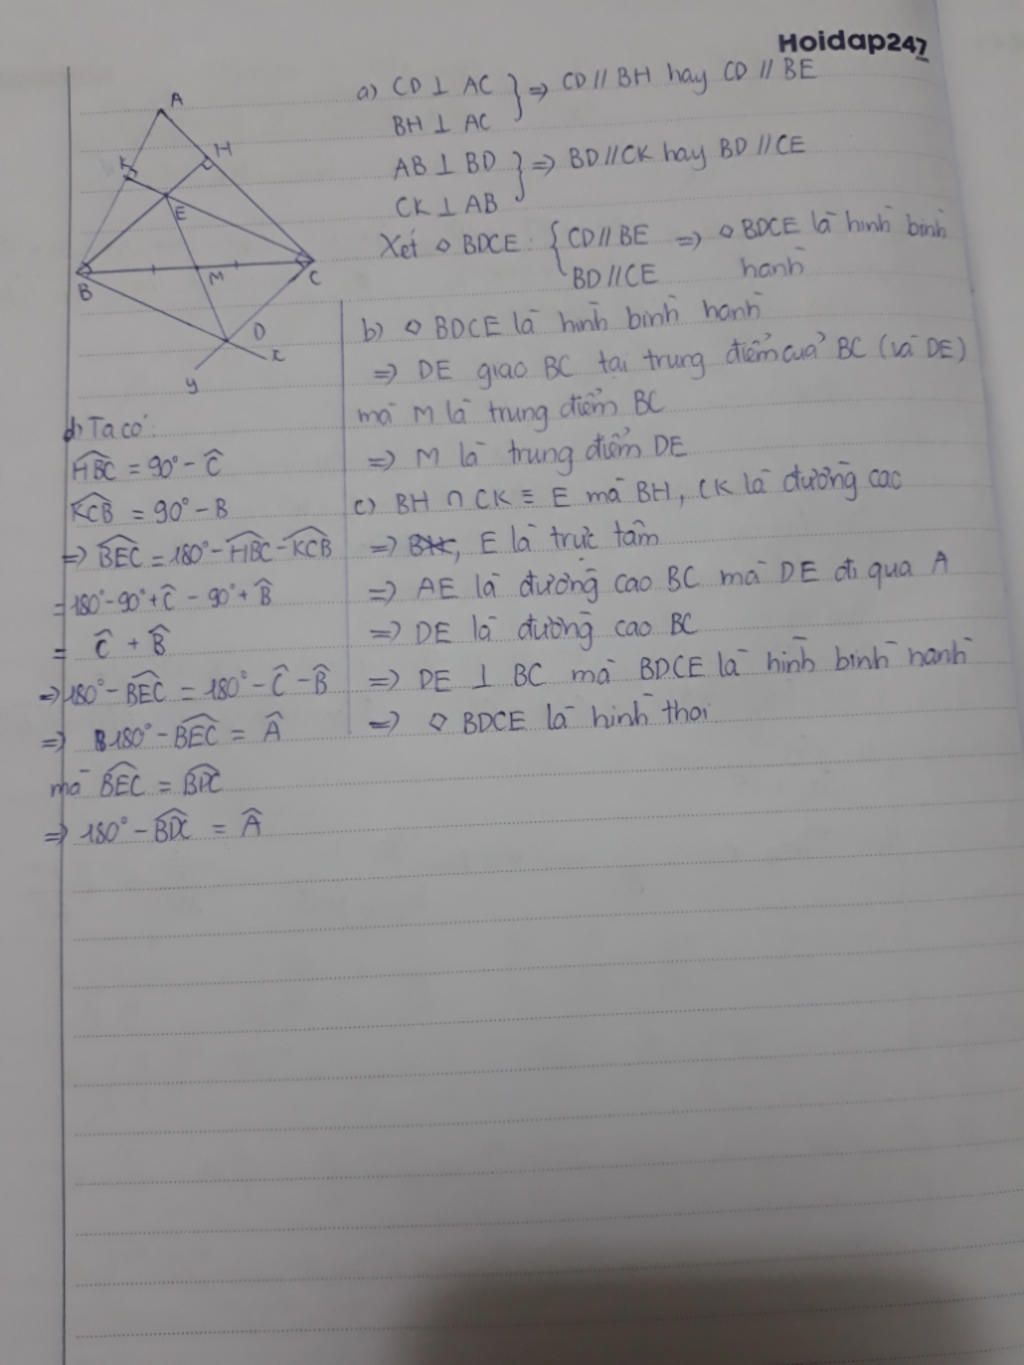 Hoidap247
A
K
H
E
B
M
C
D
x
y
a) CD ⊥ AC
BH ⊥ AC } => CD // BH hay CD // BE
AB ⊥ BD
CK ⊥ AB } => BD // CK hay BD // CE
Xét ◇ BDCE : { CD // BE
BD // CE => ◇ BDCE là hình bình hành
b) ◇ BDCE là hình bình hành
=> DE giao BC tại trung điểm của BC (và DE)
mà M là trung điểm BC
=> M là trung điểm DE
c) BH ∩ CK ≡ E mà BH, CK là đường cao
=> E là trực tâm
=> AE là đường cao BC mà DE đi qua A
=> DE là đường cao BC
=> DE ⊥ BC mà BDCE là hình bình hành
=> ◇ BDCE là hình thoi
d) Ta có:
\widehat{HBC} = 90° - \widehat{C}
\widehat{KCB} = 90° - B
=> \widehat{BEC} = 180° - \widehat{HBC} - \widehat{KCB}
= 180° - 90° + \widehat{C} - 90° + \widehat{B}
= \widehat{C} + \widehat{B}
=> 180° - \widehat{BEC} = 180° - \widehat{C} - \widehat{B}
=> 180° - \widehat{BEC} = \widehat{A}
mà \widehat{BEC} = \widehat{BDC}
=> 180° - \widehat{BDC} = \widehat{A}